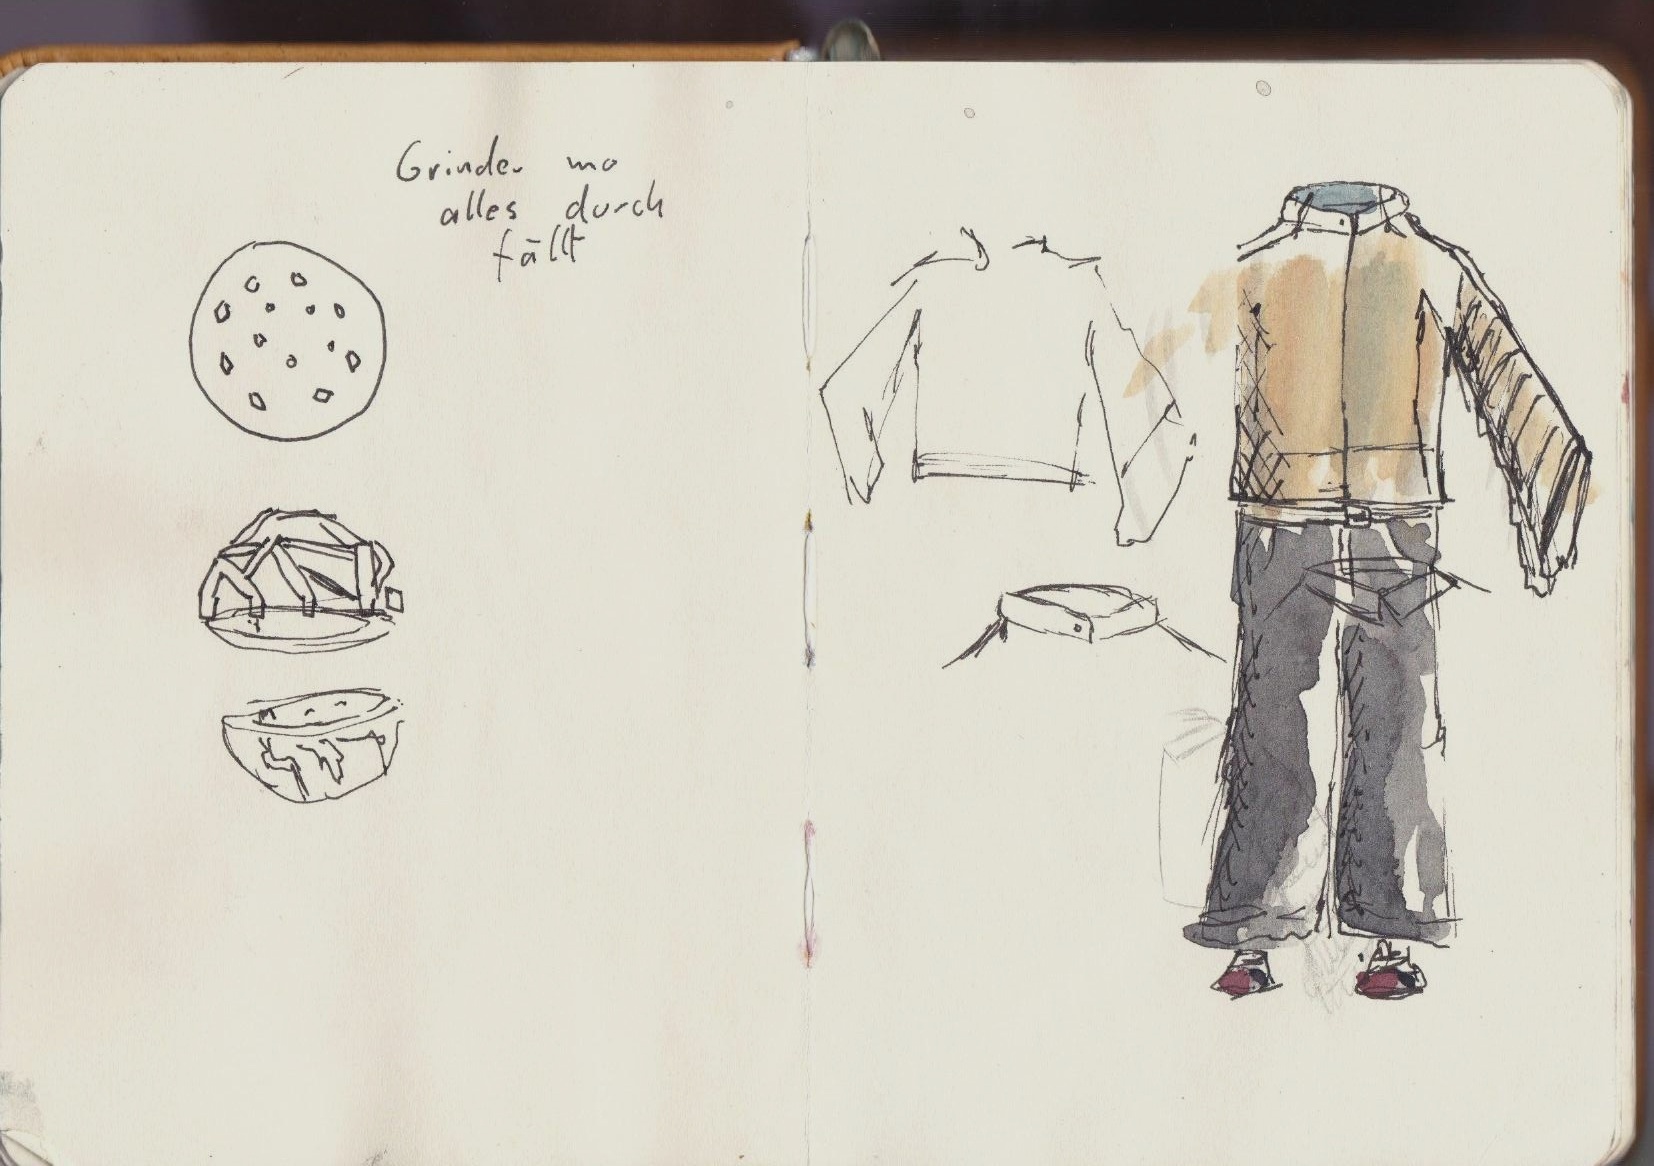 Grinder wo
alles durch
fällt